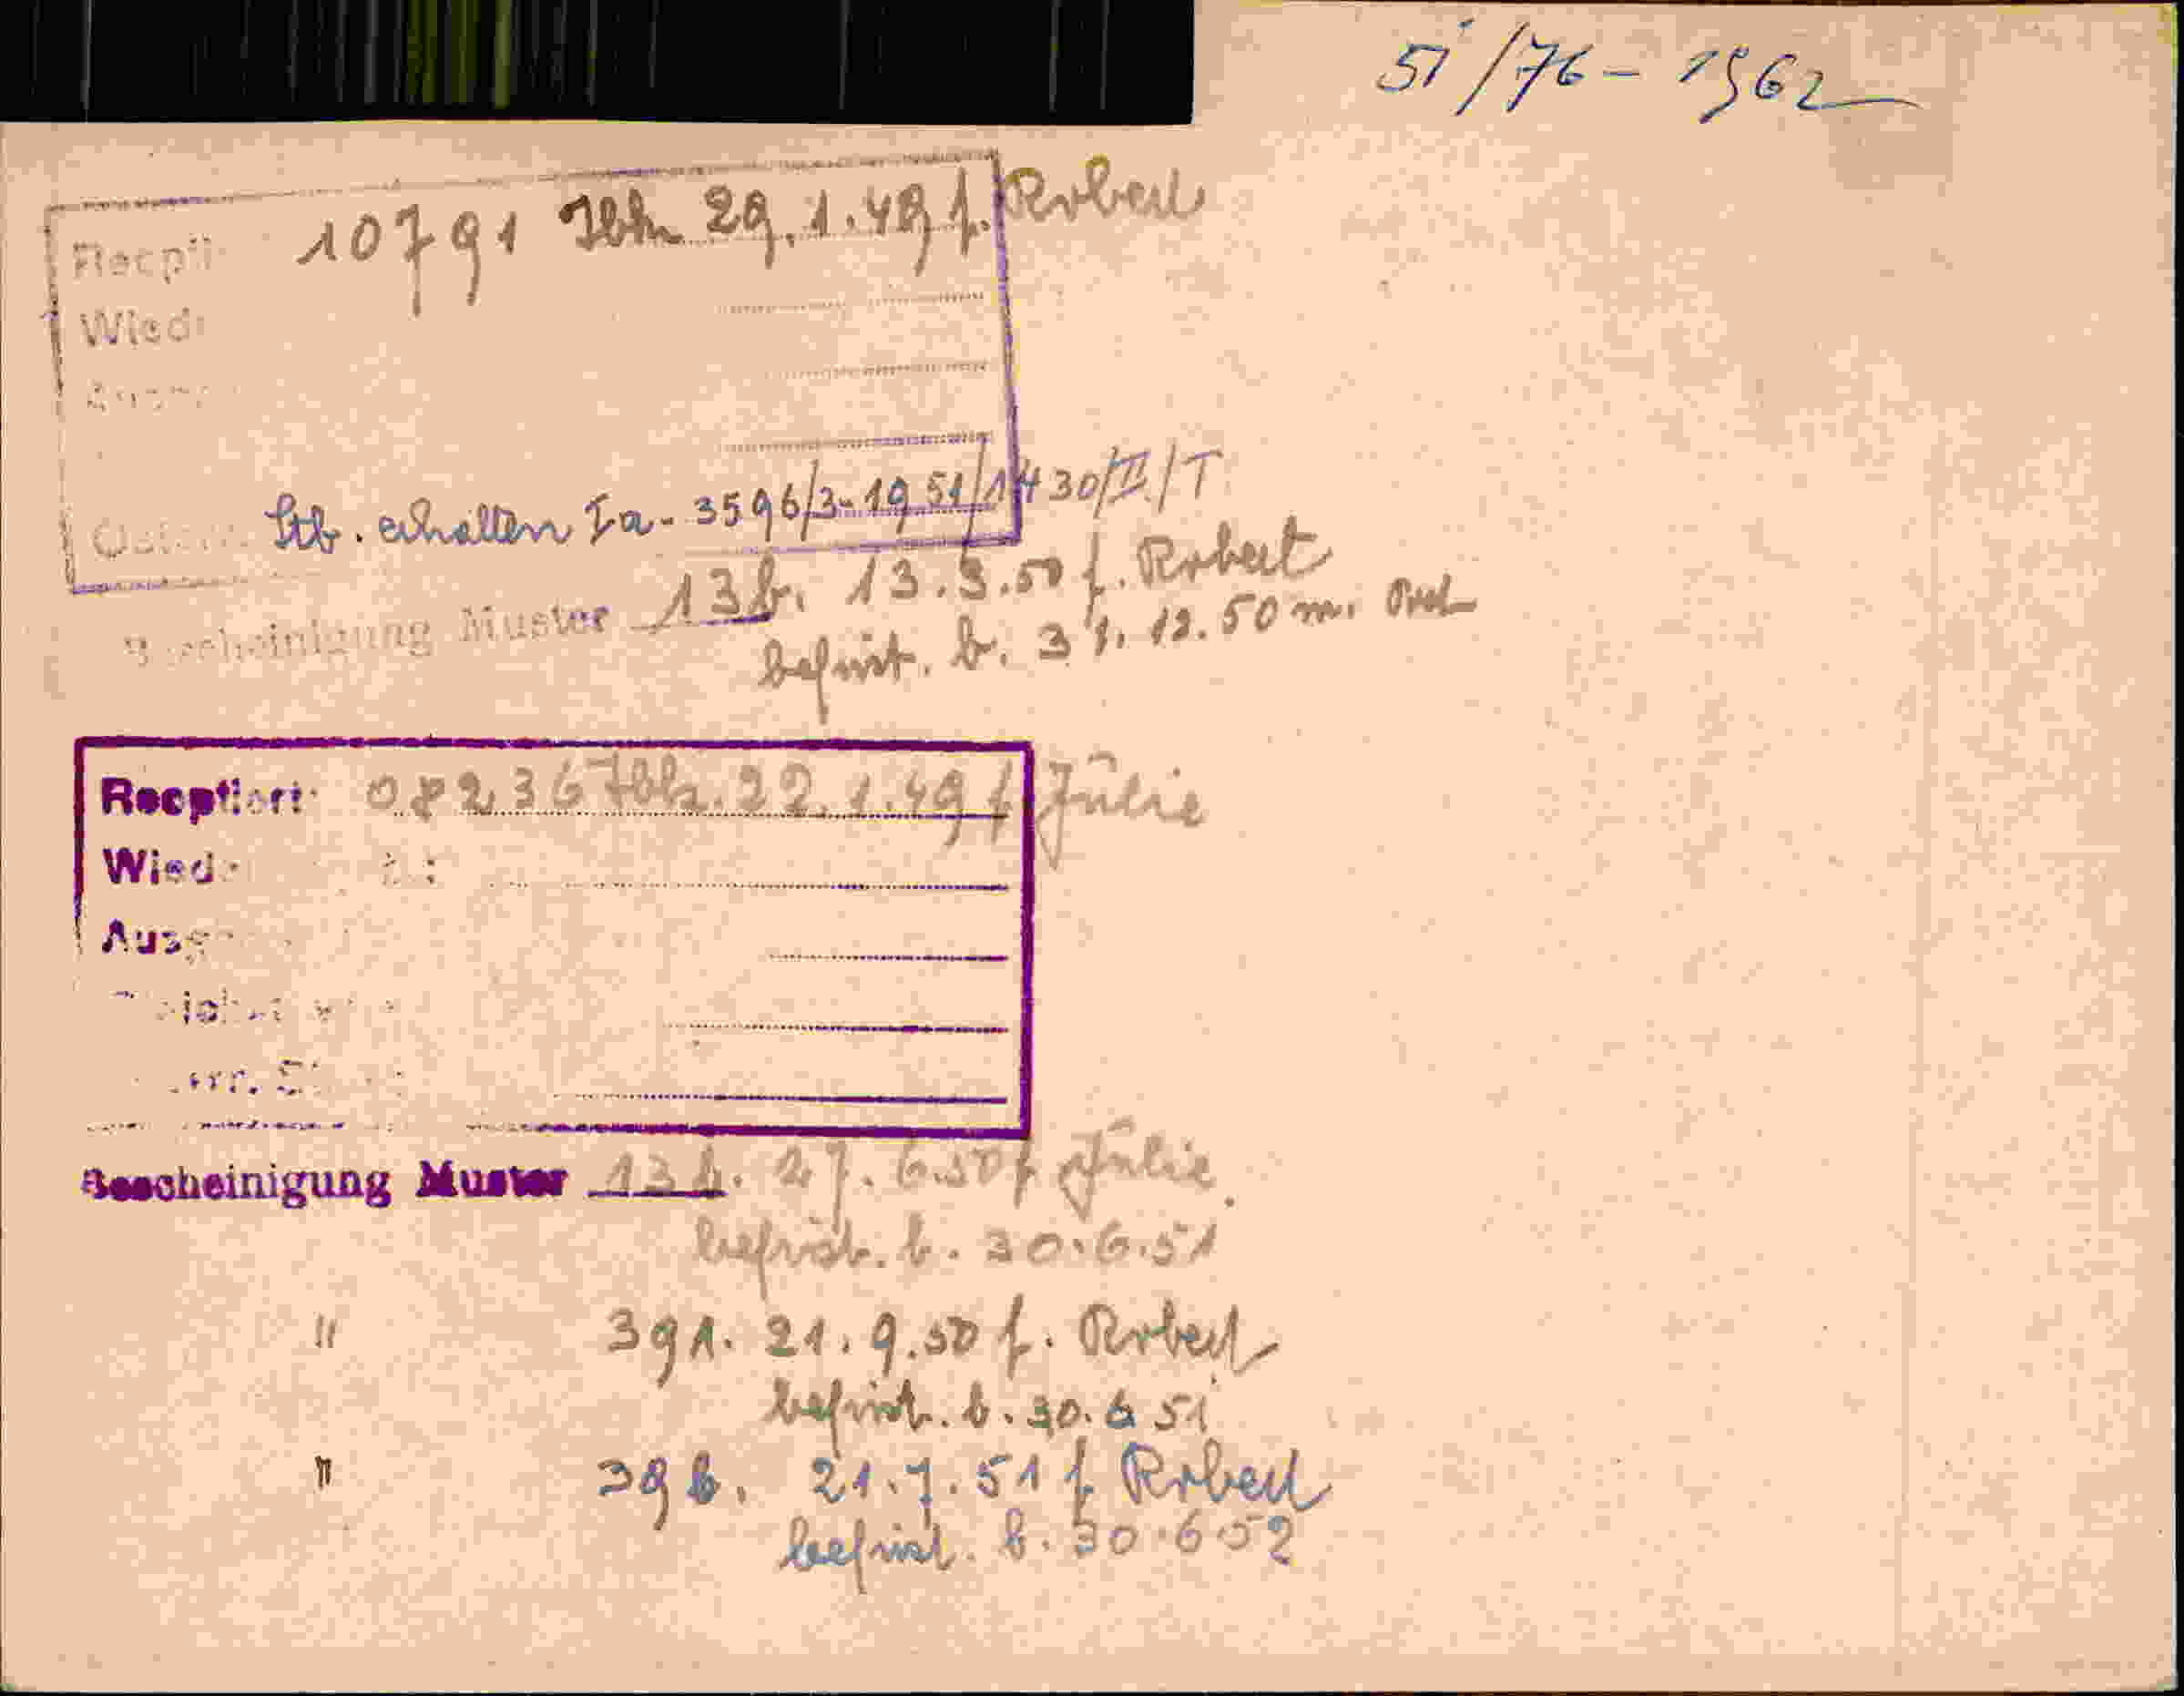 51/76 - 1962
10791 Jbk 29.1.49 f. Robert
Stb. erhalten Ia - 3596/3-1951/1430/II/T
Bescheinigung Muster 13b. 13.3.50 f. Robert
befrist. b. 31.12.50 m.
Reoptiert 08236 Jbk. 22.1.49 f Julie
Bescheinigung Muster 13b. 27.6.50 f Julie
befrist. b. 30.6.51
" 39A. 21.9.50 f. Robert
befrist. b. 30.6 51
" 39b. 21.7.51 f Robert
befrist. b. 30.6 52